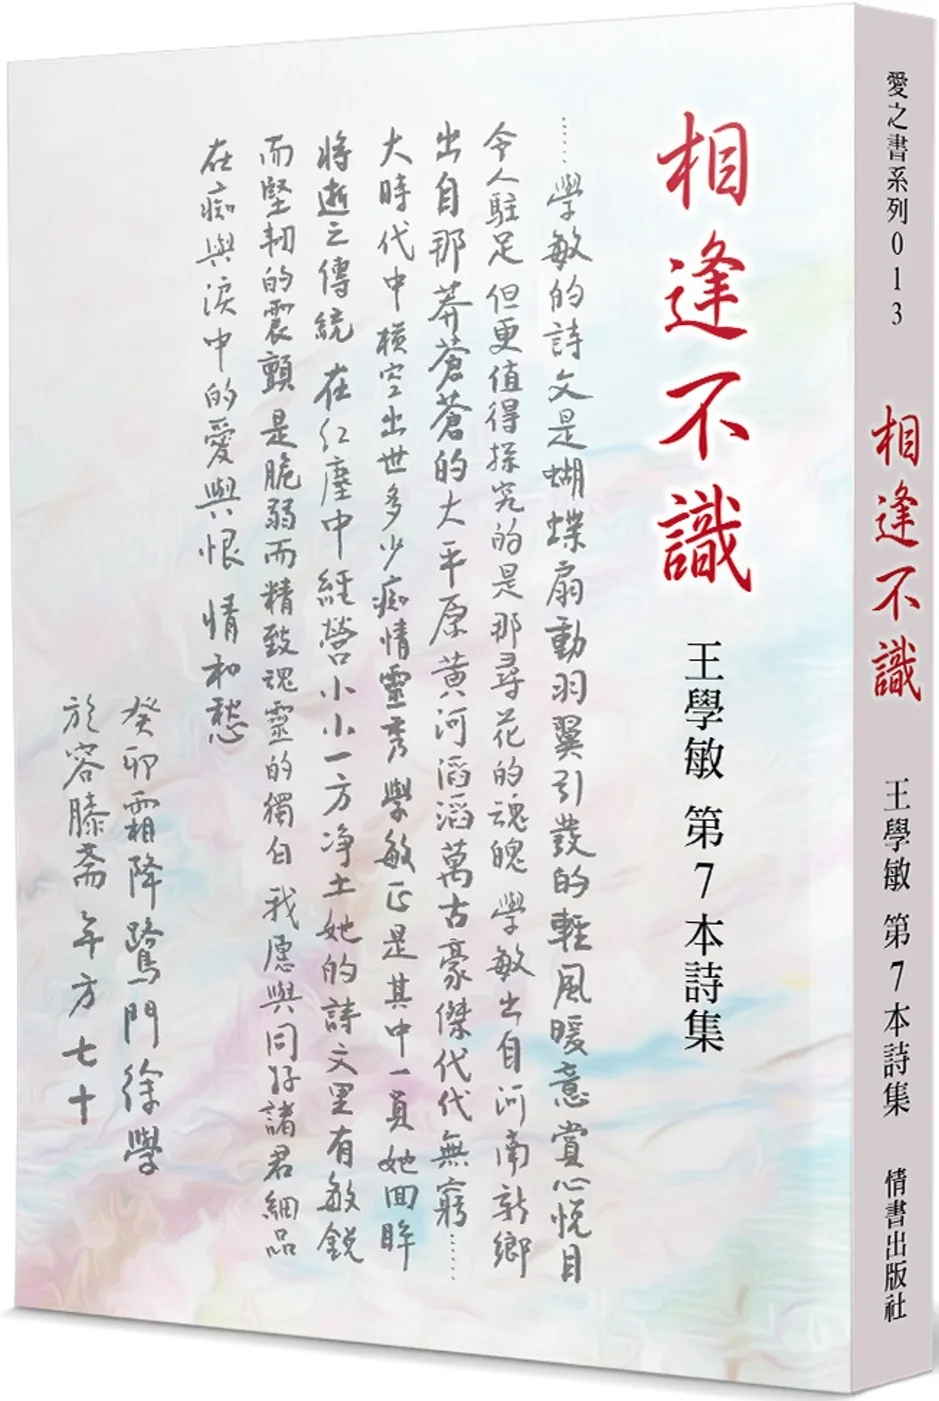 相逢不識
王學敏 第7本詩集
……學敏的詩文是蝴蝶扇動羽翼引發的輕風暖意賞心悅目
令人駐足 但更值得探究的是那尋花的魂魄 學敏出自河南新鄉
出自那莽蒼蒼的大平原黃河滔滔萬古豪傑代代無窮……
大時代中橫空出世多少痴情靈秀學敏正是其中一員她回眸
將逝之傳統 在紅塵中經營小小一方净土她的詩文里有敏銳
而堅韌的震顫 是脆弱而精致魂靈的獨白 我愿與同好諸君細品
在痴與淚中的愛與恨 情和愁
癸卯霜降鷺門徐學
於容膝斋年方七十
愛之書系列013
相逢不識
王學敏 第7本詩集
情書出版社